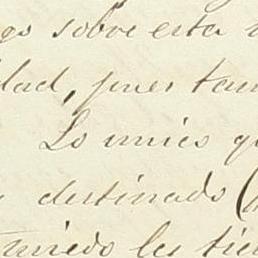 sobre esta
dad, pues tam
Lo unico q
destinado (
miedo les tie